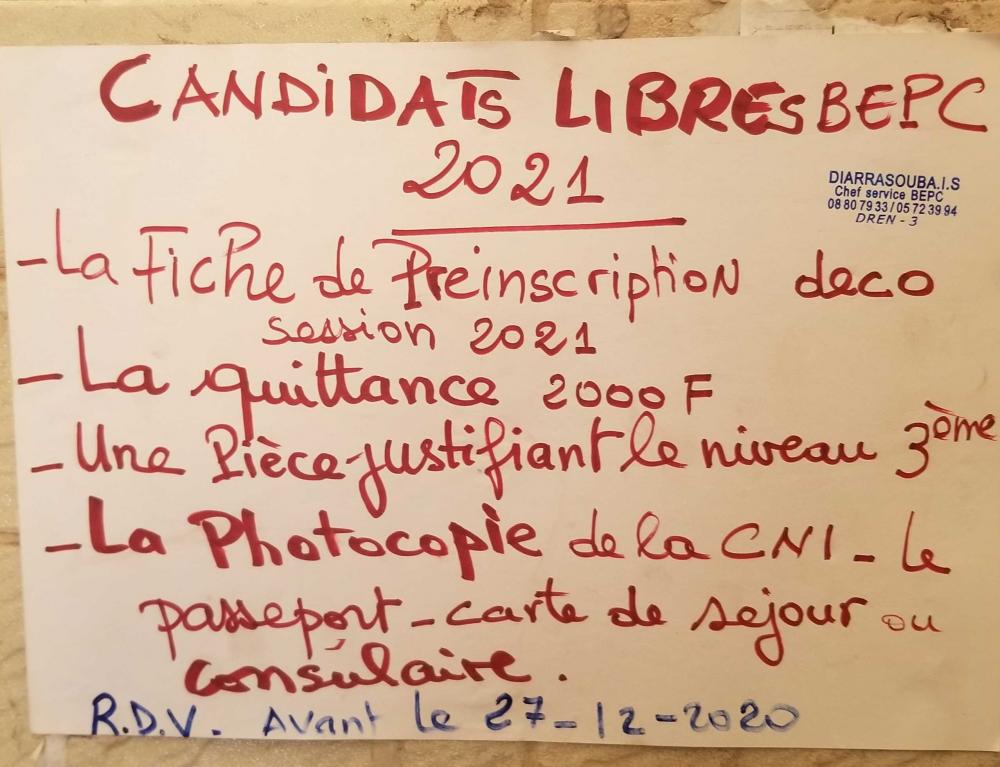 CANDIDATS LIBRES BEPC
2021
DIARRASOUBA.I.S
Chef service BEPC
08 80 79 33 / 05 72 39 94
DREN - 3
- La Fiche de Préinscription deco
session 2021
- La quittance 2000 F
- Une Pièce justifiant le niveau 3ème
- La Photocopie de la CNI - le
passeport - carte de sejour ou
consulaire.
R.D.V. Avant le 27-12-2020